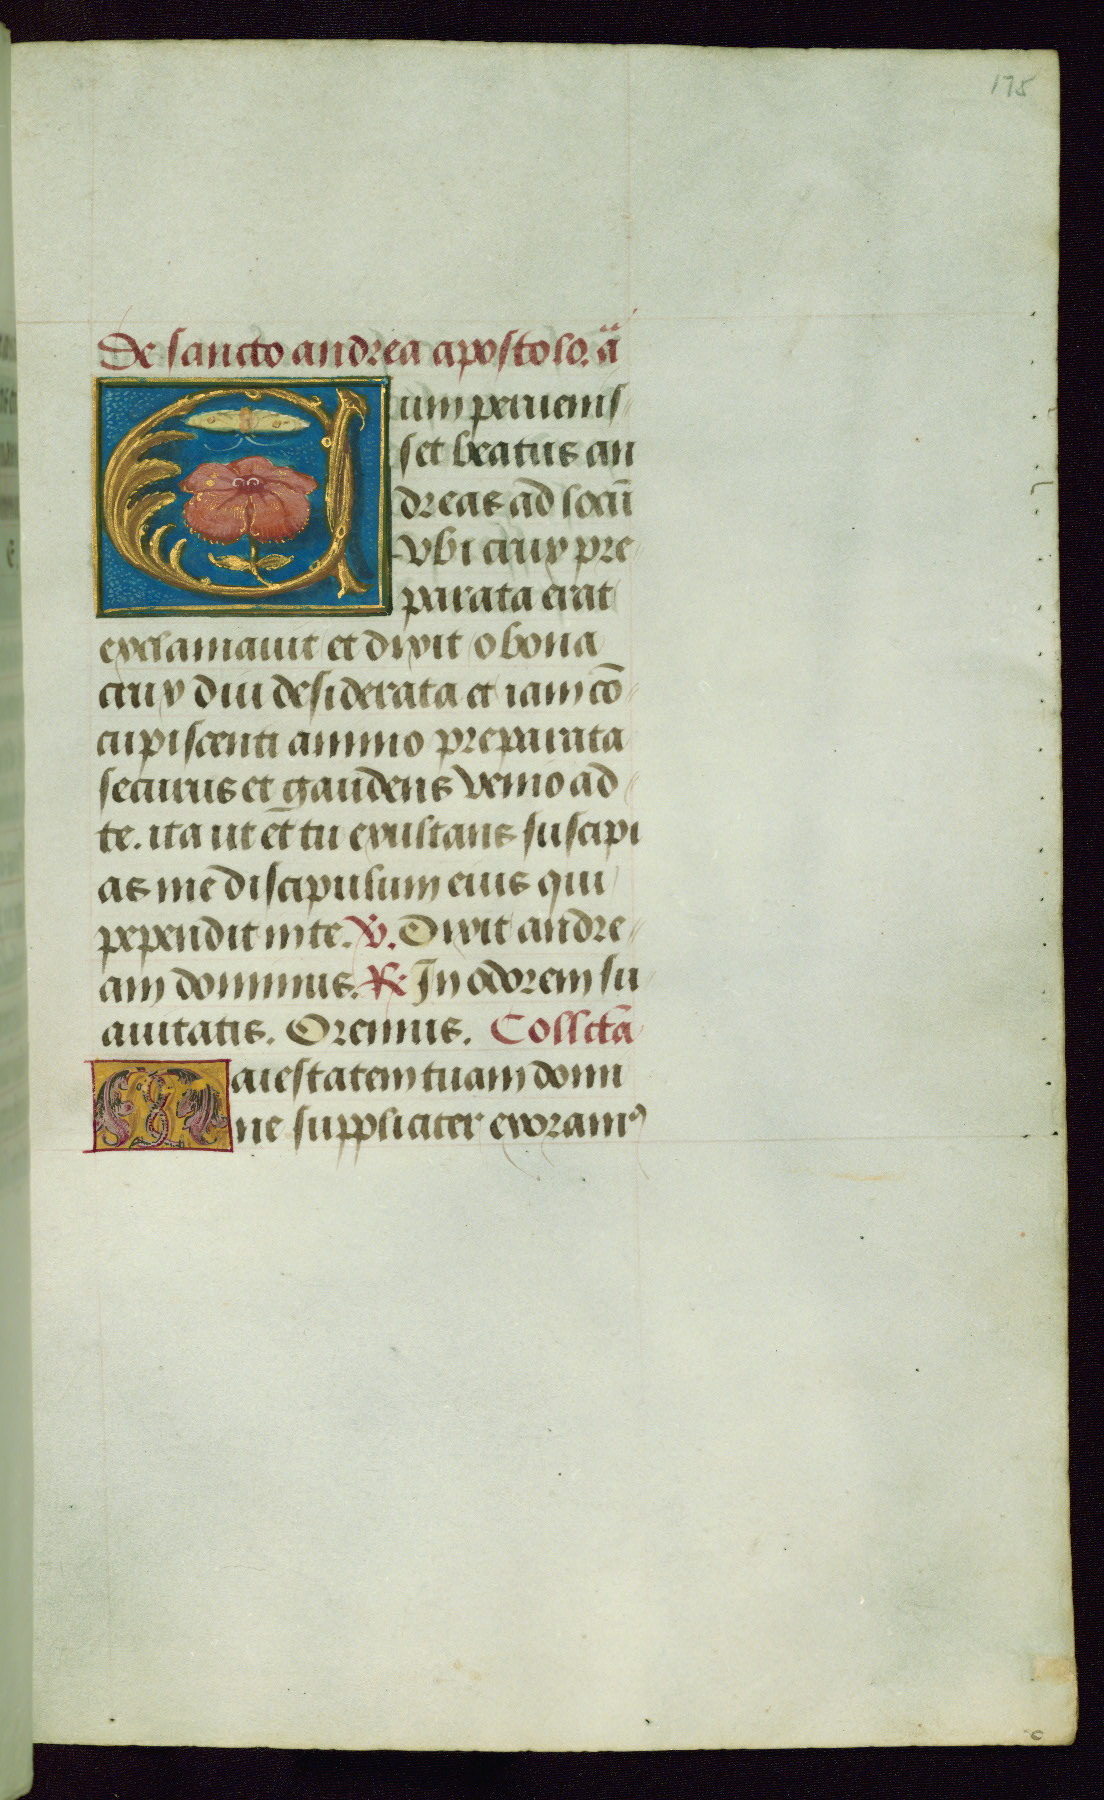 175
De sancto andrea apostolo. ã
Cum peruenis
set beatus an
dreas ad locũ
vbi crux pre
parata erat
exclamauit et dixit o bona
crux diu desiderata et iam cõ
cupiscenti animo preparata
securus et gaudens venio ad
te. ita ut et̃ tu exultans suscipi
as me discipulum eius qui
pependit in te. ℣. Dixit andre
am dominus. ℟. In odorem su
auitatis. Oremus. Collcta̅
Maiestatem tuam domi
ne suppliciter exoramꝰ